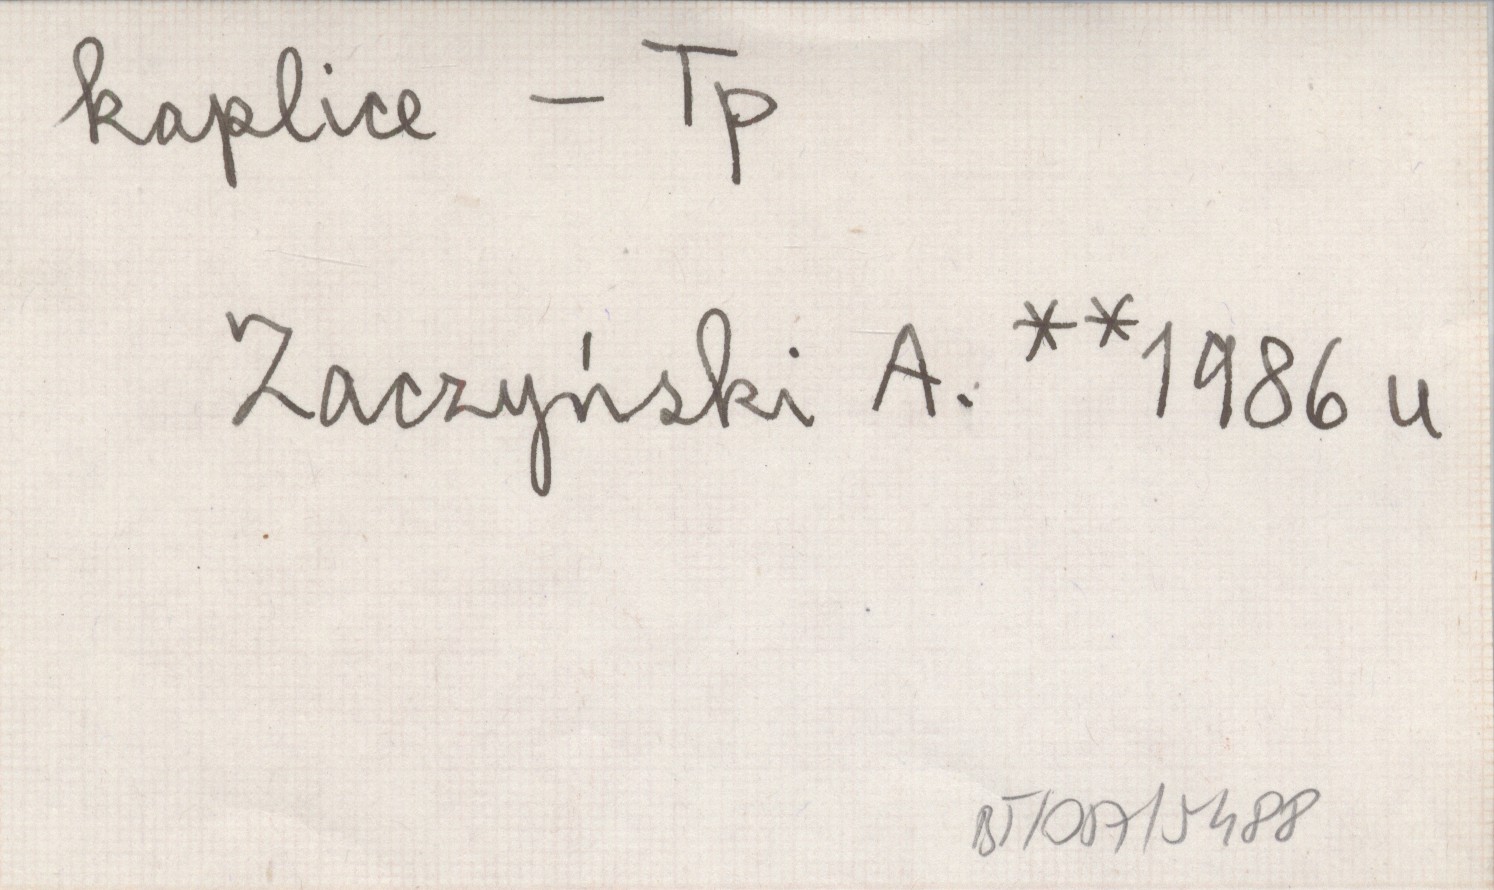 kaplice – Tp
Zaczyński A. **1986 u
BT/087/5488